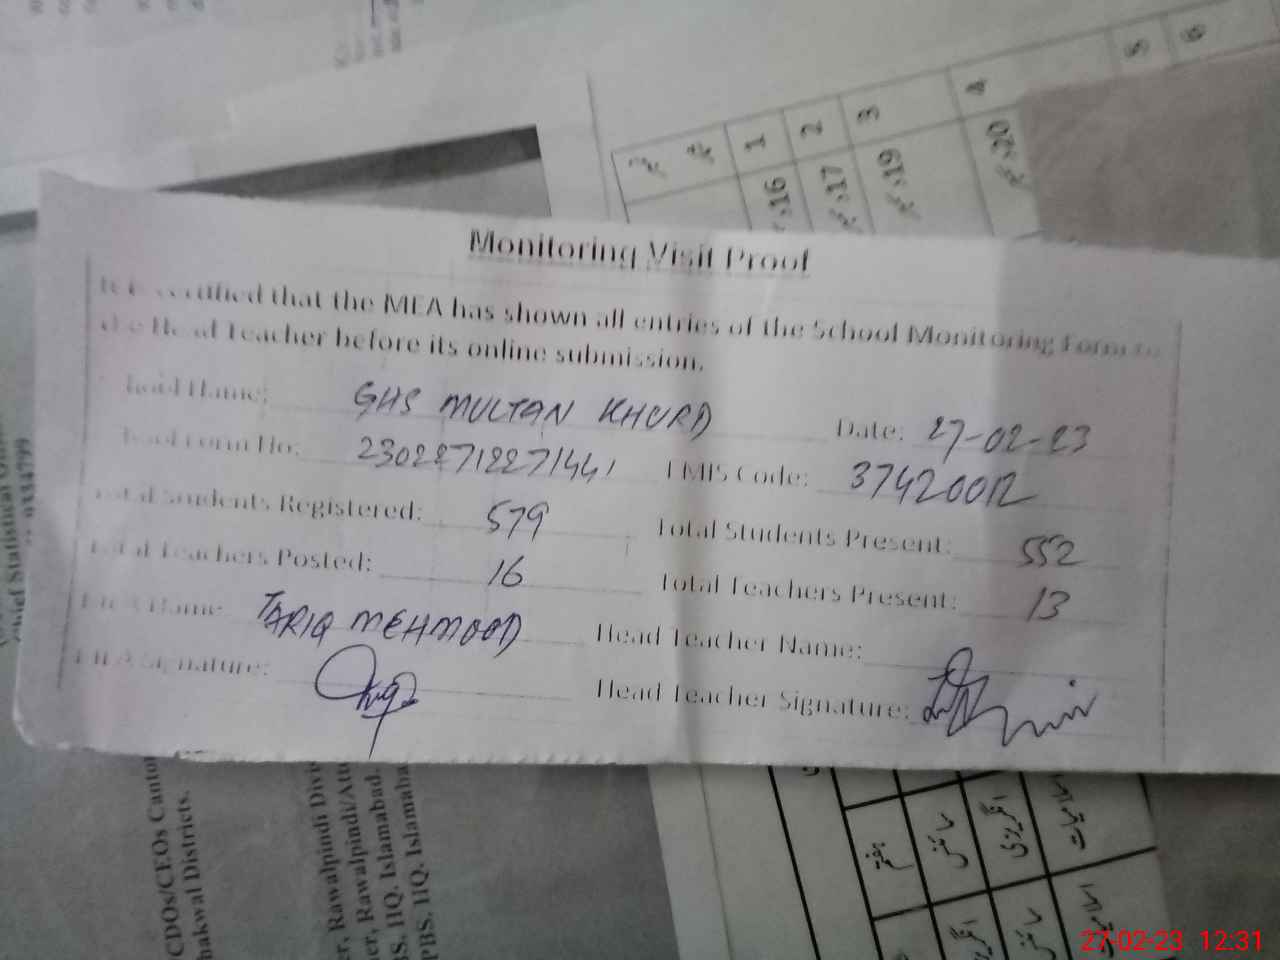 Monitoring Visit Proof
verified that the MEA has shown all entries of the School Monitoring Form to
the Head Teacher before its online submission.
Name: GHS MULTAN KHURD Date: 27-02-23
Form No: EMIS Code: 37420012
Total Students Registered: 579 Total Students Present: 552
Total Teachers Posted: 16 Total Teachers Present: 13
Name TARIQ MEHMOOD Head Teacher Name:
MEA Signature: Head Teacher Signature:
1 2 3 4 5 6
16 17 19 20
Chief Statistical
CDOs/CEOs
Districts.
Rawalpindi
Rawalpindi/
HQ. Islamabad.
PBS. HQ. Islamaba
ہفتم سائنس انگریزی اسلامیات
27-02-23 12:31